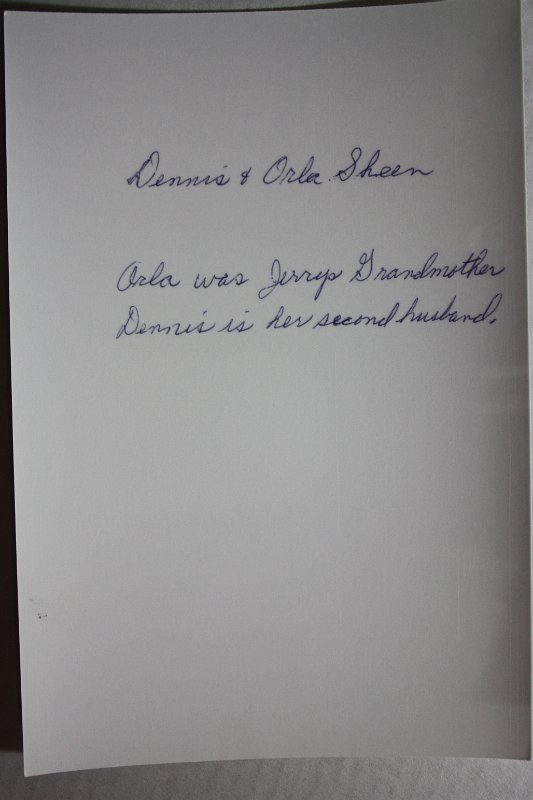 Dennis & Orla Sheen
Orla was Jerrys Grandmother
Dennis is her second husband.